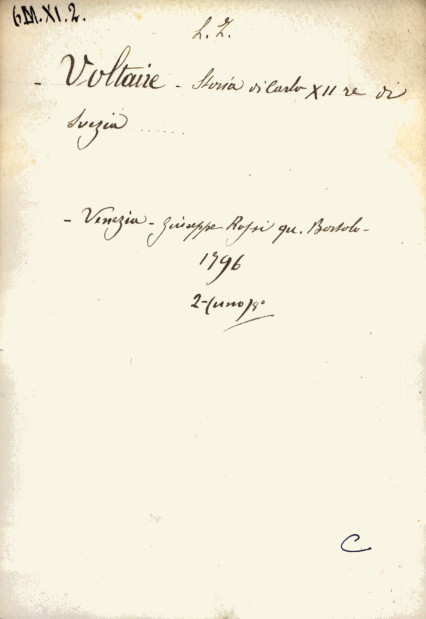 6M.XI.2.
L. Z.
- Voltaire - Storia di Carlo XII re di
Svezia ......
- Venezia - Giuseppe Rossi qu. Bortolo -
1796
2-(uno)8º
C